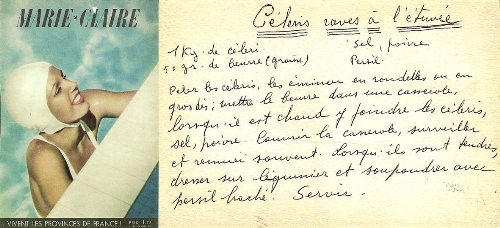 MARIE-CLAIRE
VIVENT LES PROVINCES DE FRANCE !
Céleris raves à l'étuvée
1 Kg. de céleri
50 gr. de beurre (graisse)
sel, poivre
Persil
Peler les céleris, les émincer en rondelles ou en
gros dés; mettre le beurre dans une casserole,
lorsqu'il est chaud y joindre les céleris,
sel, poivre. Couvrir la casserole, surveiller
et remuer souvent. Lorsqu'ils sont tendres,
dresser sur légumier et saupoudrer avec
persil haché. Servir.